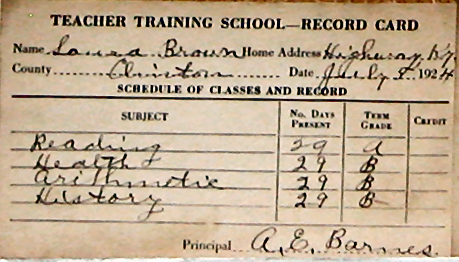 TEACHER TRAINING SCHOOL—RECORD CARD
Name Lansa Brown Home Address Highway, Ky.
County Clinton Date July 5 1924
SCHEDULE OF CLASSES AND RECORD
SUBJECT No. DAYS PRESENT TERM GRADE CREDIT
Reading 29 A
Health 29 B
Arithmetic 29 B
History 29 B
Principal A. E. Barnes.